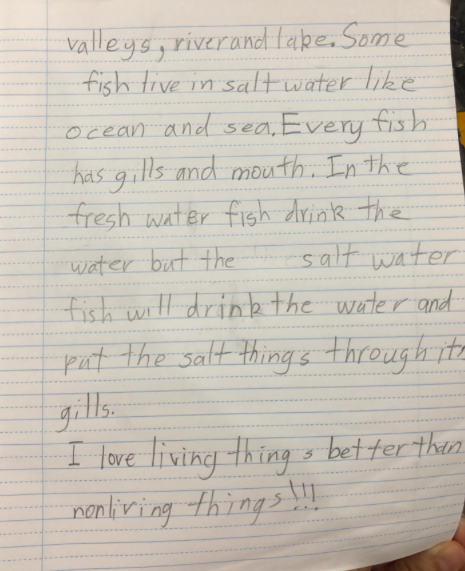 valleys, river and lake. Some
fish live in salt water like
ocean and sea. Every fish
has gills and mouth. In the
fresh water fish drink the
water but the salt water
fish will drink the water and
put the salt things through its
gills.
I love living things better than
nonliving things!!!